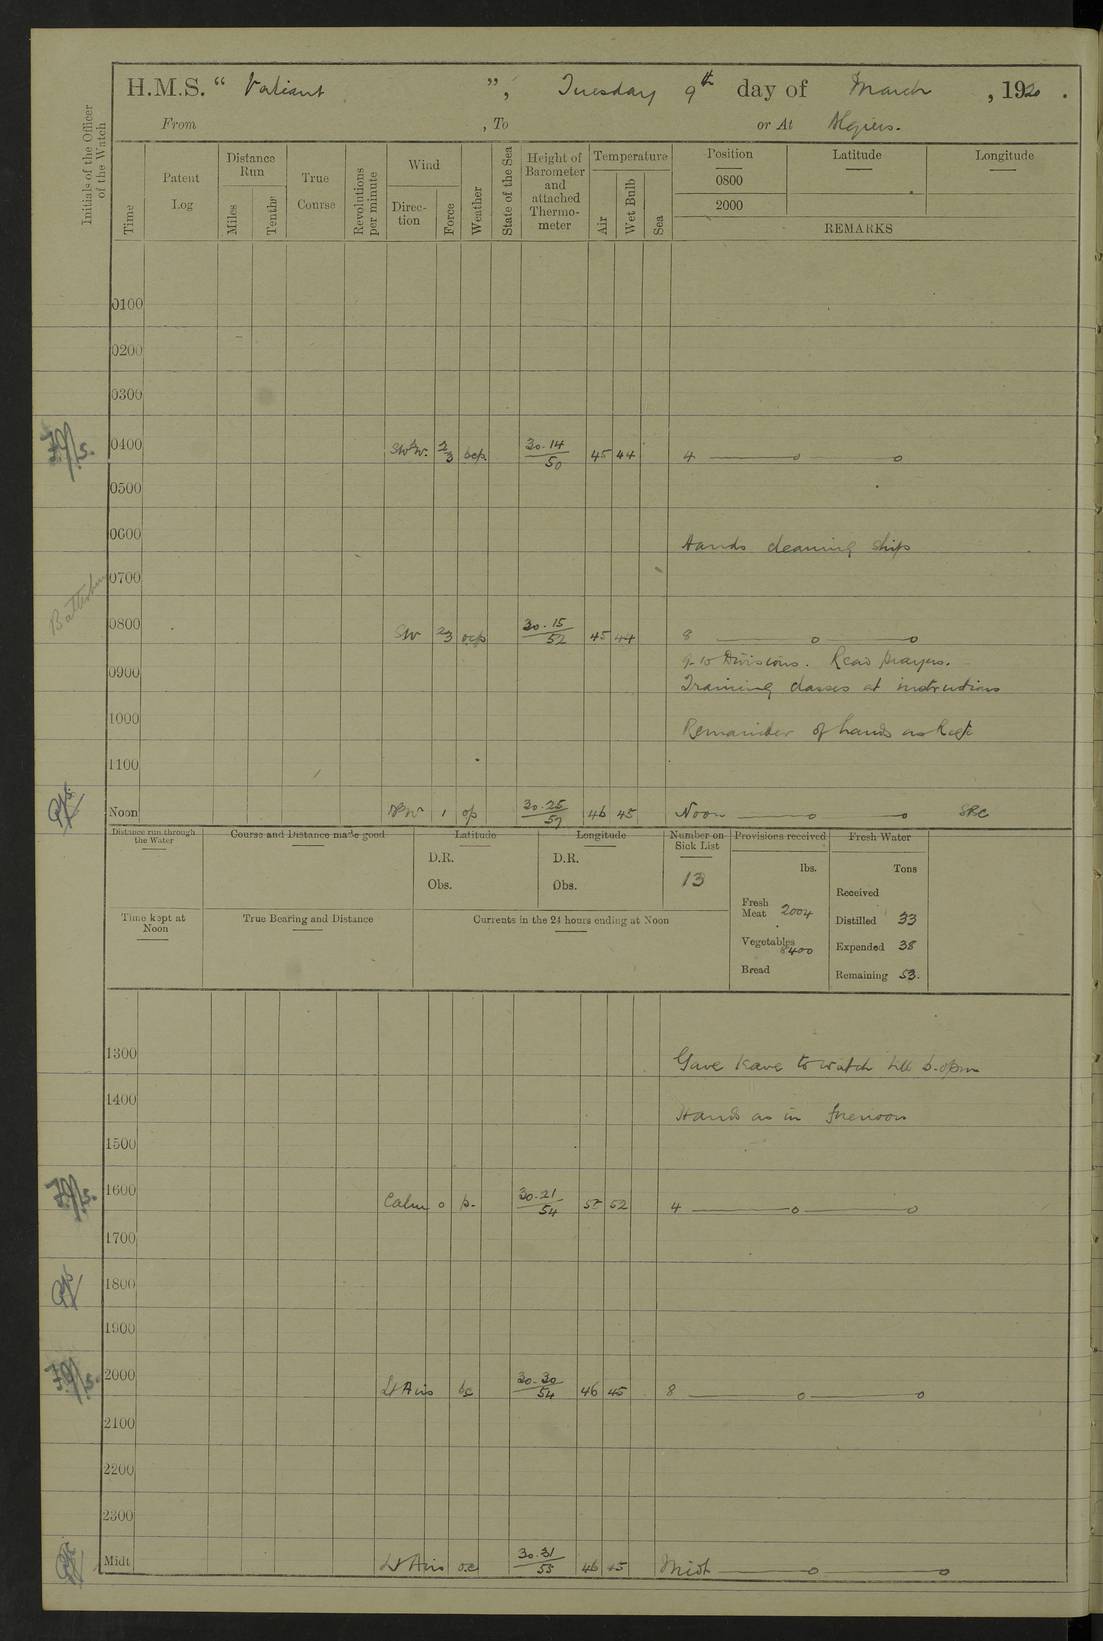 H.M.S. “ Valiant ”, Tuesday 9th day of March, 1920.
From , To or At Algiers.
Initials of the Officer of the Watch
Time
Patent Log
Distance Run
Miles
Tenths
True Course
Revolutions per minute
Wind
Direction
Force
Weather
State of the Sea
Height of Barometer and attached Thermometer
Temperature
Air
Wet Bulb
Sea
Position
0800
2000
Latitude
Longitude
REMARKS
0100
0200
0300
0400 2/3 ocp 30.14/50 45 44 4
0500
0600 Hands cleaning ship
0700
0800 SW 2/3 ocp 30.15/52 45 44 8
9-10 Divisions. Read prayers.
0900 Training classes at instructions
1000 Remainder of hands as
1100
Noon 1 op 30.25/57 46 45 Noon
Distance run through the Water
Course and Distance made good
Latitude
D.R.
Obs.
Longitude
D.R.
Obs.
Number on Sick List
13
Provisions received
lbs.
Fresh Meat 2004
Vegetables 8400
Bread
Fresh Water
Tons
Received
Distilled 33
Expended 38
Remaining 53.
Time kept at Noon
True Bearing and Distance
Currents in the 24 hours ending at Noon
1300 Gave leave to watch till pm
1400 Hands as in forenoon
1500
1600 Calm 0 b. 30.21/54 52 4
1700
1800
1900
2000 Lt Airs bc 30.30/54 46 45 8
2100
2200
2300
Midt Lt Airs oc 30.31/55 46 45 Midt